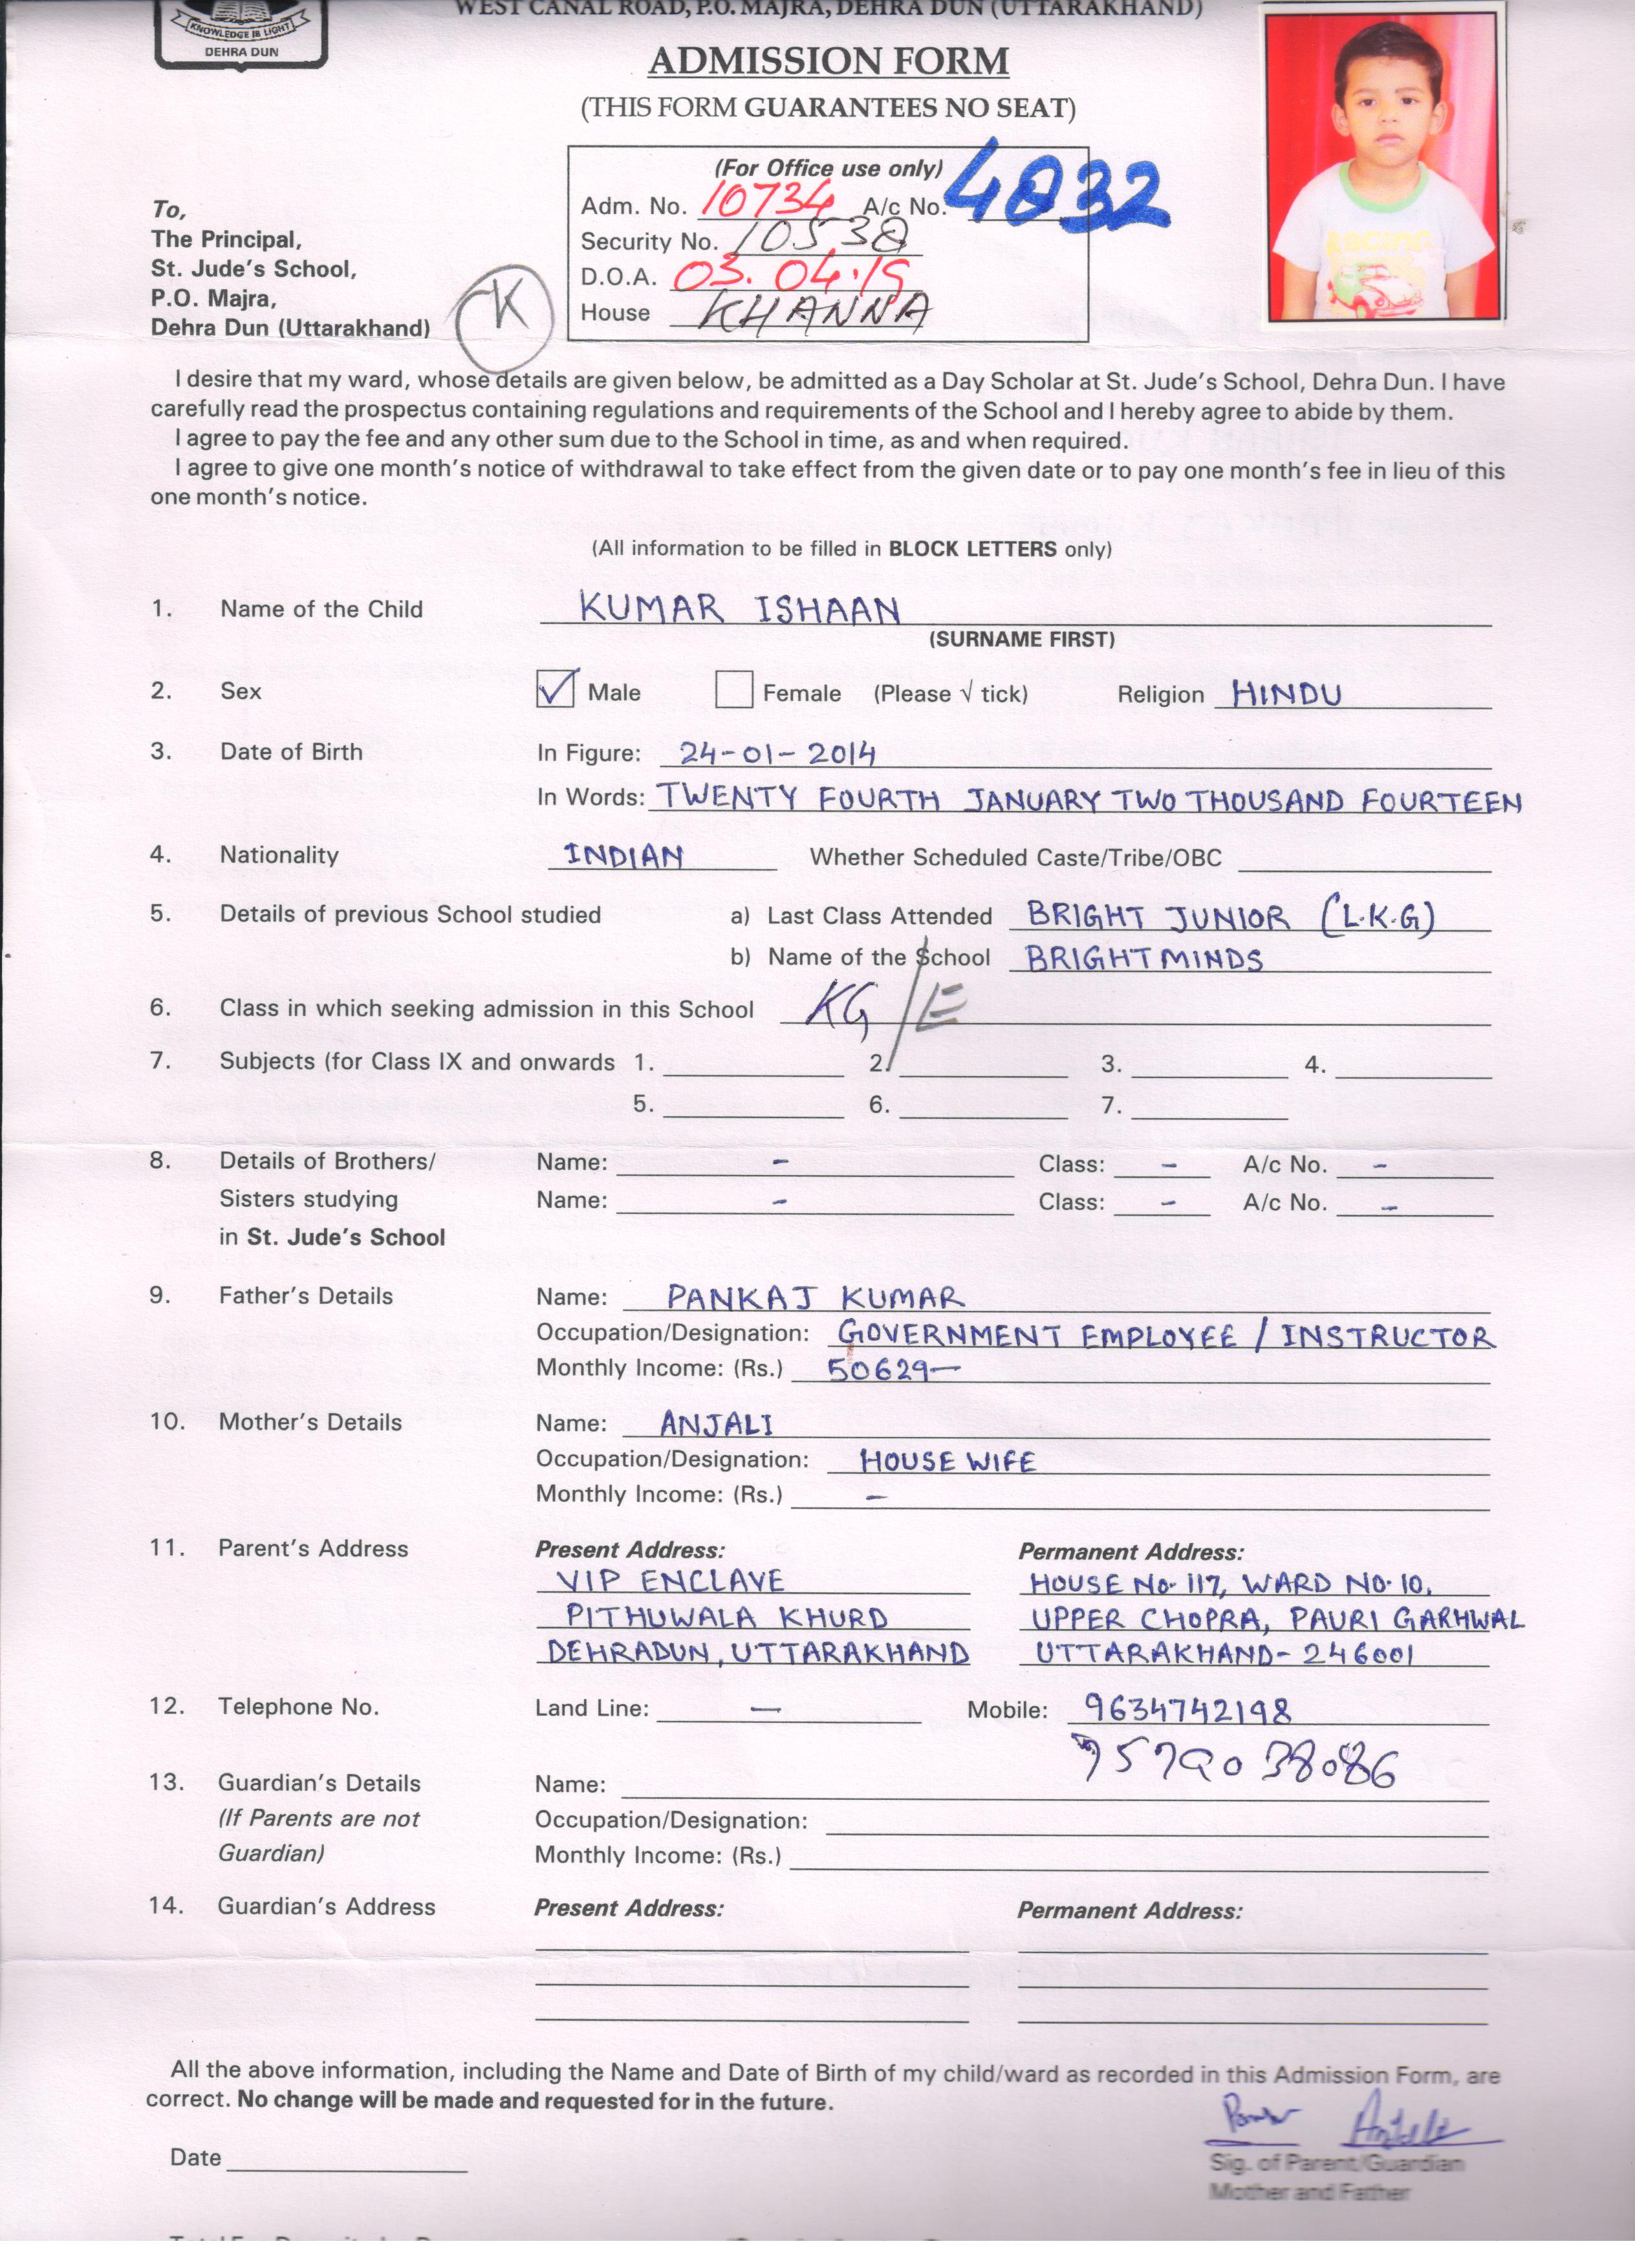 WEST CANAL ROAD, P.O. MAJRA, DEHRA DUN (UTTARAKHAND)
KNOWLEDGE IS LIGHT
DEHRA DUN
ADMISSION FORM
(THIS FORM GUARANTEES NO SEAT)
(For Office use only)
Adm. No. 10734 A/c No. 4032
Security No. 10538
D.O.A. 03.04.19
House KHANNA
K
To,
The Principal,
St. Jude's School,
P.O. Majra,
Dehra Dun (Uttarakhand)
RACING
I desire that my ward, whose details are given below, be admitted as a Day Scholar at St. Jude's School, Dehra Dun. I have
carefully read the prospectus containing regulations and requirements of the School and I hereby agree to abide by them.
I agree to pay the fee and any other sum due to the School in time, as and when required.
I agree to give one month's notice of withdrawal to take effect from the given date or to pay one month's fee in lieu of this
one month's notice.
(All information to be filled in BLOCK LETTERS only)
1. Name of the Child KUMAR ISHAAN
(SURNAME FIRST)
2. Sex ✓ Male Female (Please √ tick) Religion HINDU
3. Date of Birth In Figure: 24-01-2014
In Words: TWENTY FOURTH JANUARY TWO THOUSAND FOURTEEN
4. Nationality INDIAN Whether Scheduled Caste/Tribe/OBC
5. Details of previous School studied a) Last Class Attended BRIGHT JUNIOR (L.K.G)
b) Name of the School BRIGHTMINDS
6. Class in which seeking admission in this School KG/E
7. Subjects (for Class IX and onwards 1. 2. 3. 4.
5. 6. 7.
8. Details of Brothers/ Name: - Class: - A/c No. -
Sisters studying Name: - Class: - A/c No. -
in St. Jude's School
9. Father's Details Name: PANKAJ KUMAR
Occupation/Designation: GOVERNMENT EMPLOYEE / INSTRUCTOR
Monthly Income: (Rs.) 50629-
10. Mother's Details Name: ANJALI
Occupation/Designation: HOUSE WIFE
Monthly Income: (Rs.) -
11. Parent's Address Present Address: Permanent Address:
VIP ENCLAVE HOUSE No. 117, WARD NO. 10,
PITHUWALA KHURD UPPER CHOPRA, PAURI GARHWAL
DEHRADUN, UTTARAKHAND UTTARAKHAND- 246001
12. Telephone No. Land Line: - Mobile: 9634742198
7579038086
13. Guardian's Details Name:
(If Parents are not Occupation/Designation:
Guardian) Monthly Income: (Rs.)
14. Guardian's Address Present Address: Permanent Address:
All the above information, including the Name and Date of Birth of my child/ward as recorded in this Admission Form, are
correct. No change will be made and requested for in the future.
Date
Sig. of Parent/Guardian
Mother and Father